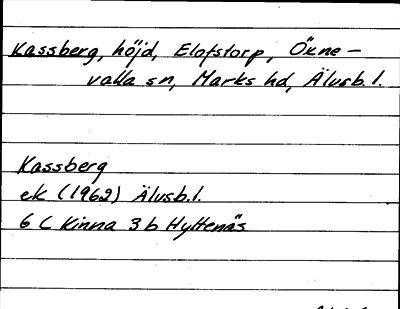 Kassberg, höjd, Elofstorp, Öxne-
valla sn, Marks hd, Älvsb.l.
Kassberg
ek (1962) Älvsb.l.
6 C Kinna 3 b Hyltenäs